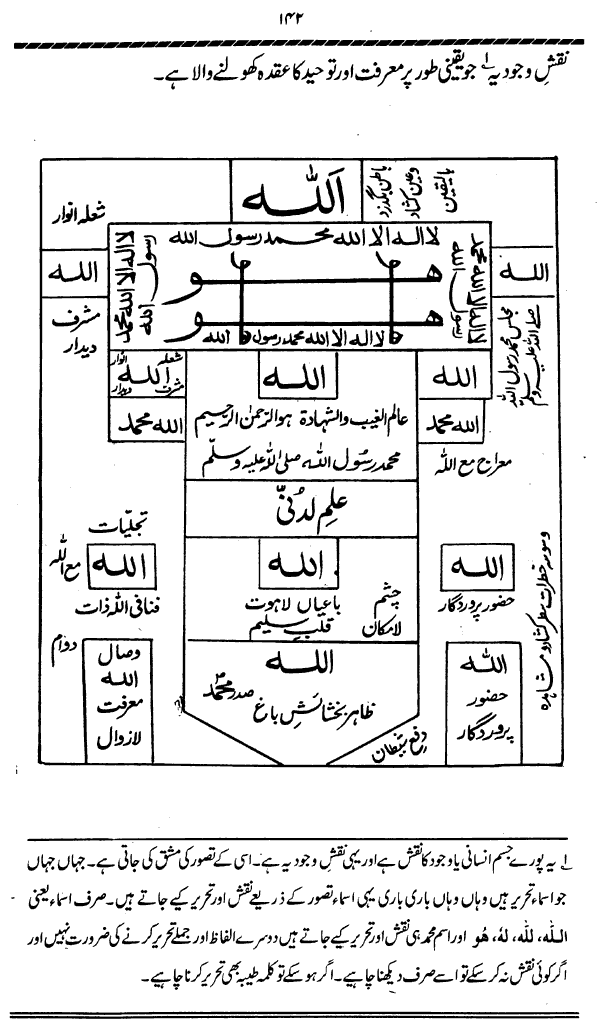 ۱۴۲
نقشِ وجودیہ ۱؎ جو یقینی طور پر معرفت اور توحید کا عقدہ کھولنے والا ہے۔
بالیقین
وعین کشاد
باطن بگذرد
اَللّٰہ
شعلہ انوار
لا الہ الا اللہ محمد رسول اللہ
لا الہ الا اللہ محمد رسول اللہ
لا الہ الا اللہ محمد رسول اللہ
ھو
ھو
لا الہ الا اللہ محمد رسول اللہ
اللہ
اللہ
مشرف دیدار
مجلس محمد رسول اللہ
صلے اللہ علیہ وسلم
اللہ
اللہ
شعلہ انوار
اللہ
مشرف دیدار
اللہ محمد
عالم الغیب والشہادۃ ہوالرّحمٰن الرّحیم
اللہ محمد
محمد رسُول اللہ صلی اللہ علیہ وسلّم
معراج مع اللہ
علمِ لدُنّی
تجلیّات
اللہ
اللہ
اللہ
مع اللہ
حضور پروردگار
چشم
لامکان
باعیاں لاہوت
قلبِ سلیم
فنا فی اللہ ذات
وسوسہ خطرات سطر کشاد و مشاہدہ
دوام
اللہ
حضور
پروردگار
اللہ
صدر محمدؐ
ظاہر بخشائش باغ
وصال
اللہ
معرفت
لازوال
رفع شیطان
۱؎ یہ پورے جسم انسانی یا وجود کا نقش ہے اور یہی نقشِ وجودیہ ہے۔ اسی کے تصور کی مشق کی جاتی ہے۔ جہاں جہاں
جو اسماء تحریر ہیں وہاں وہاں باری باری یہی اسماء تصور کے ذریعے نقش اور تحریر کیے جاتے ہیں۔ صرف اسماء یعنی
اللہ، للہ، لہٗ، ھُو اور اسم محمد ہی نقش اور تحریر کیے جاتے ہیں دوسرے الفاظ اور جملے تحریر کرنے کی ضرورت نہیں اور
اگر کوئی نقش نہ کر سکے تو اسے صرف دیکھنا چاہیے۔ اگر ہو سکے تو کلمہ طیبہ بھی تحریر کرنا چاہیے۔